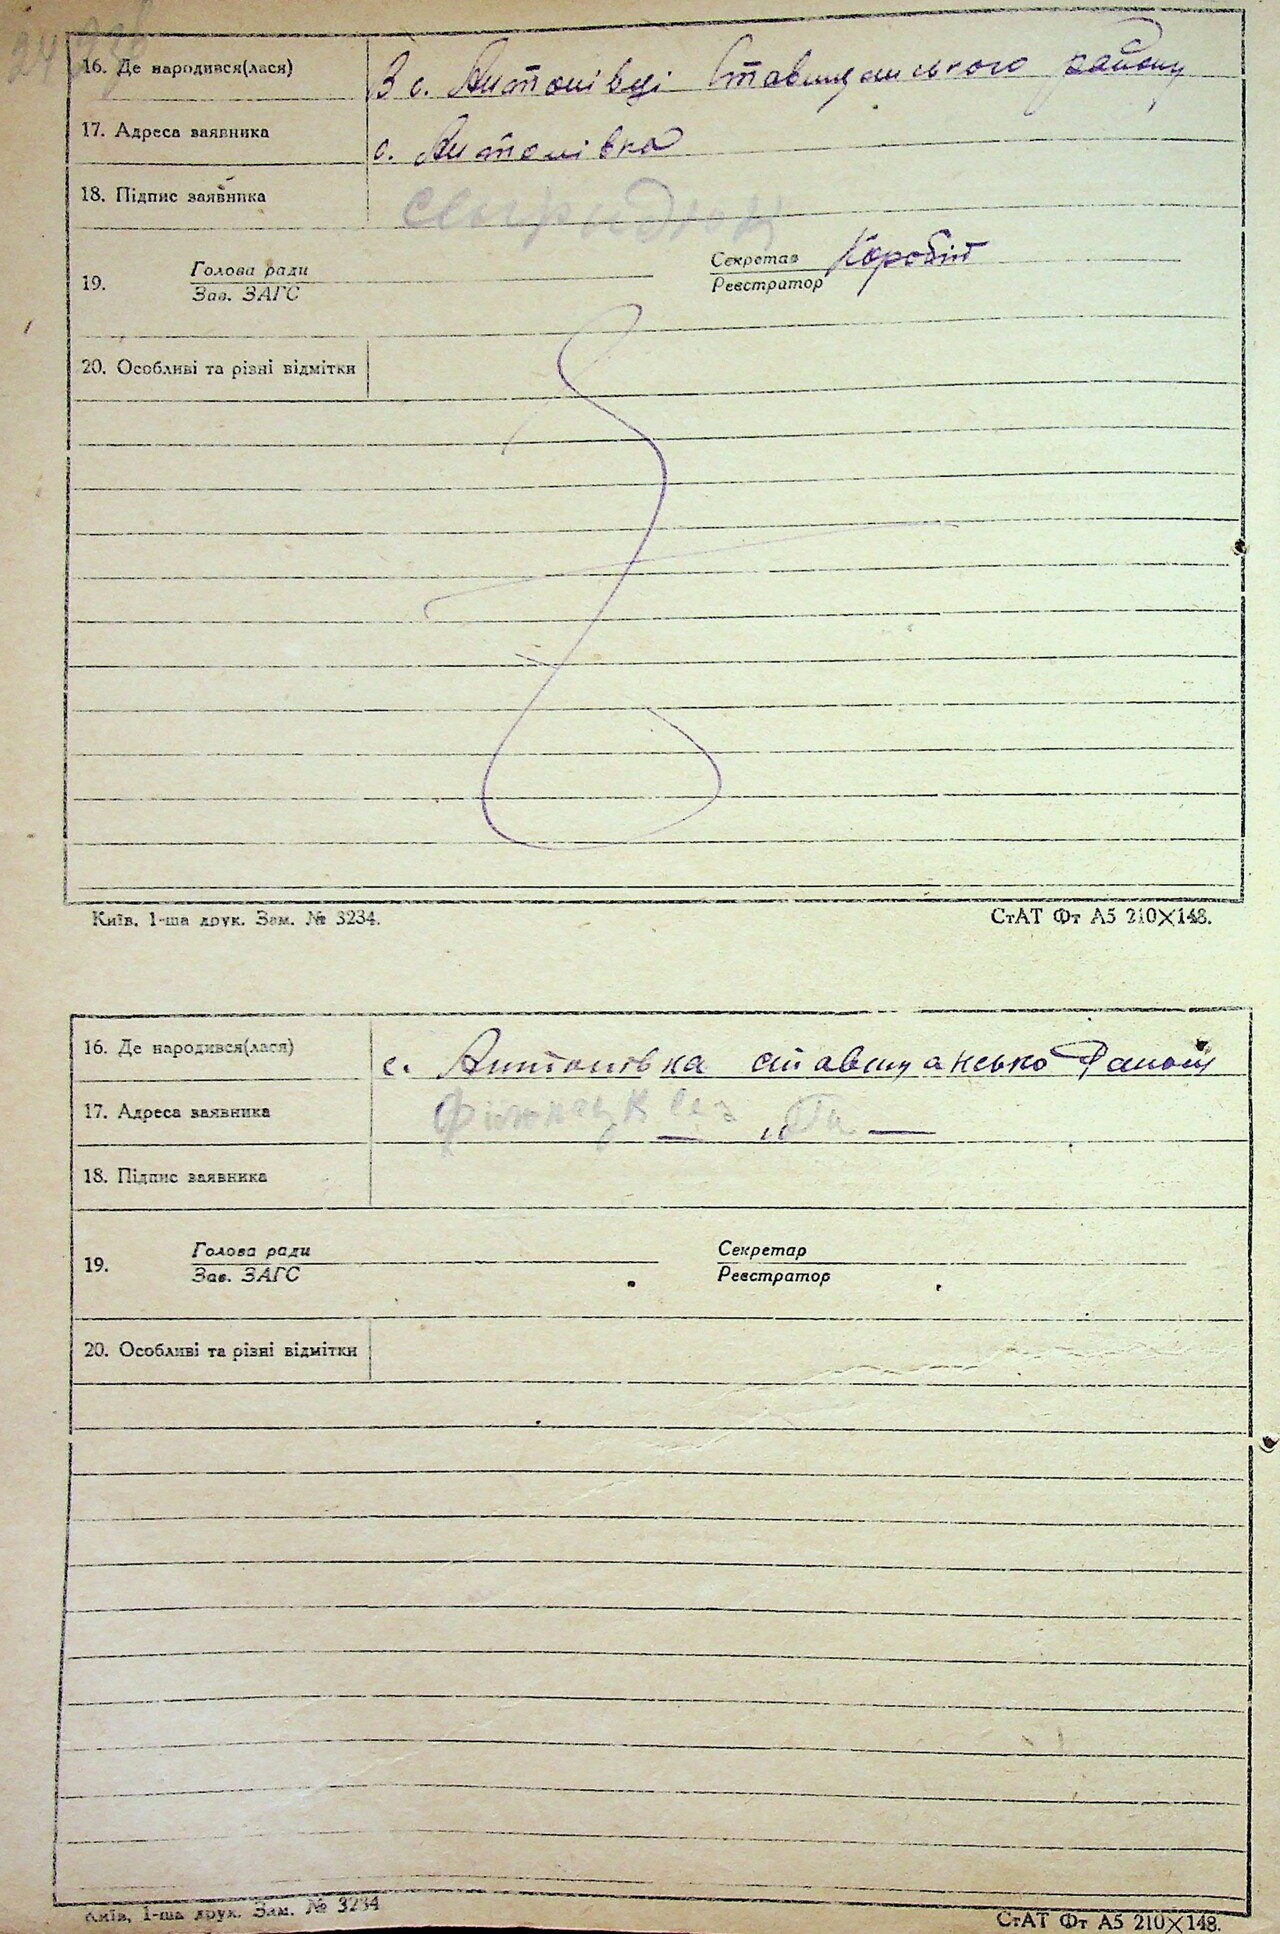 16. Де народився(лася) В с. Антонівці Ставищанського району
17. Адреса заявника с. Антонівка
18. Підпис заявника
Голова ради Секретар Коробій
19. Зав. ЗАГС Реєстратор
20. Особливі та різні відмітки
Київ, 1-ша друк. Зам. № 3234. СтАТ Фт А5 210×148.
16. Де народився(лася) с. Антонівка ставищансько району
17. Адреса заявника
18. Підпис заявника
Голова ради Секретар
19. Зав. ЗАГС Реєстратор
20. Особливі та різні відмітки
Київ, 1-ша друк. Зам. № 3234 СтАТ Фт А5 210×148.